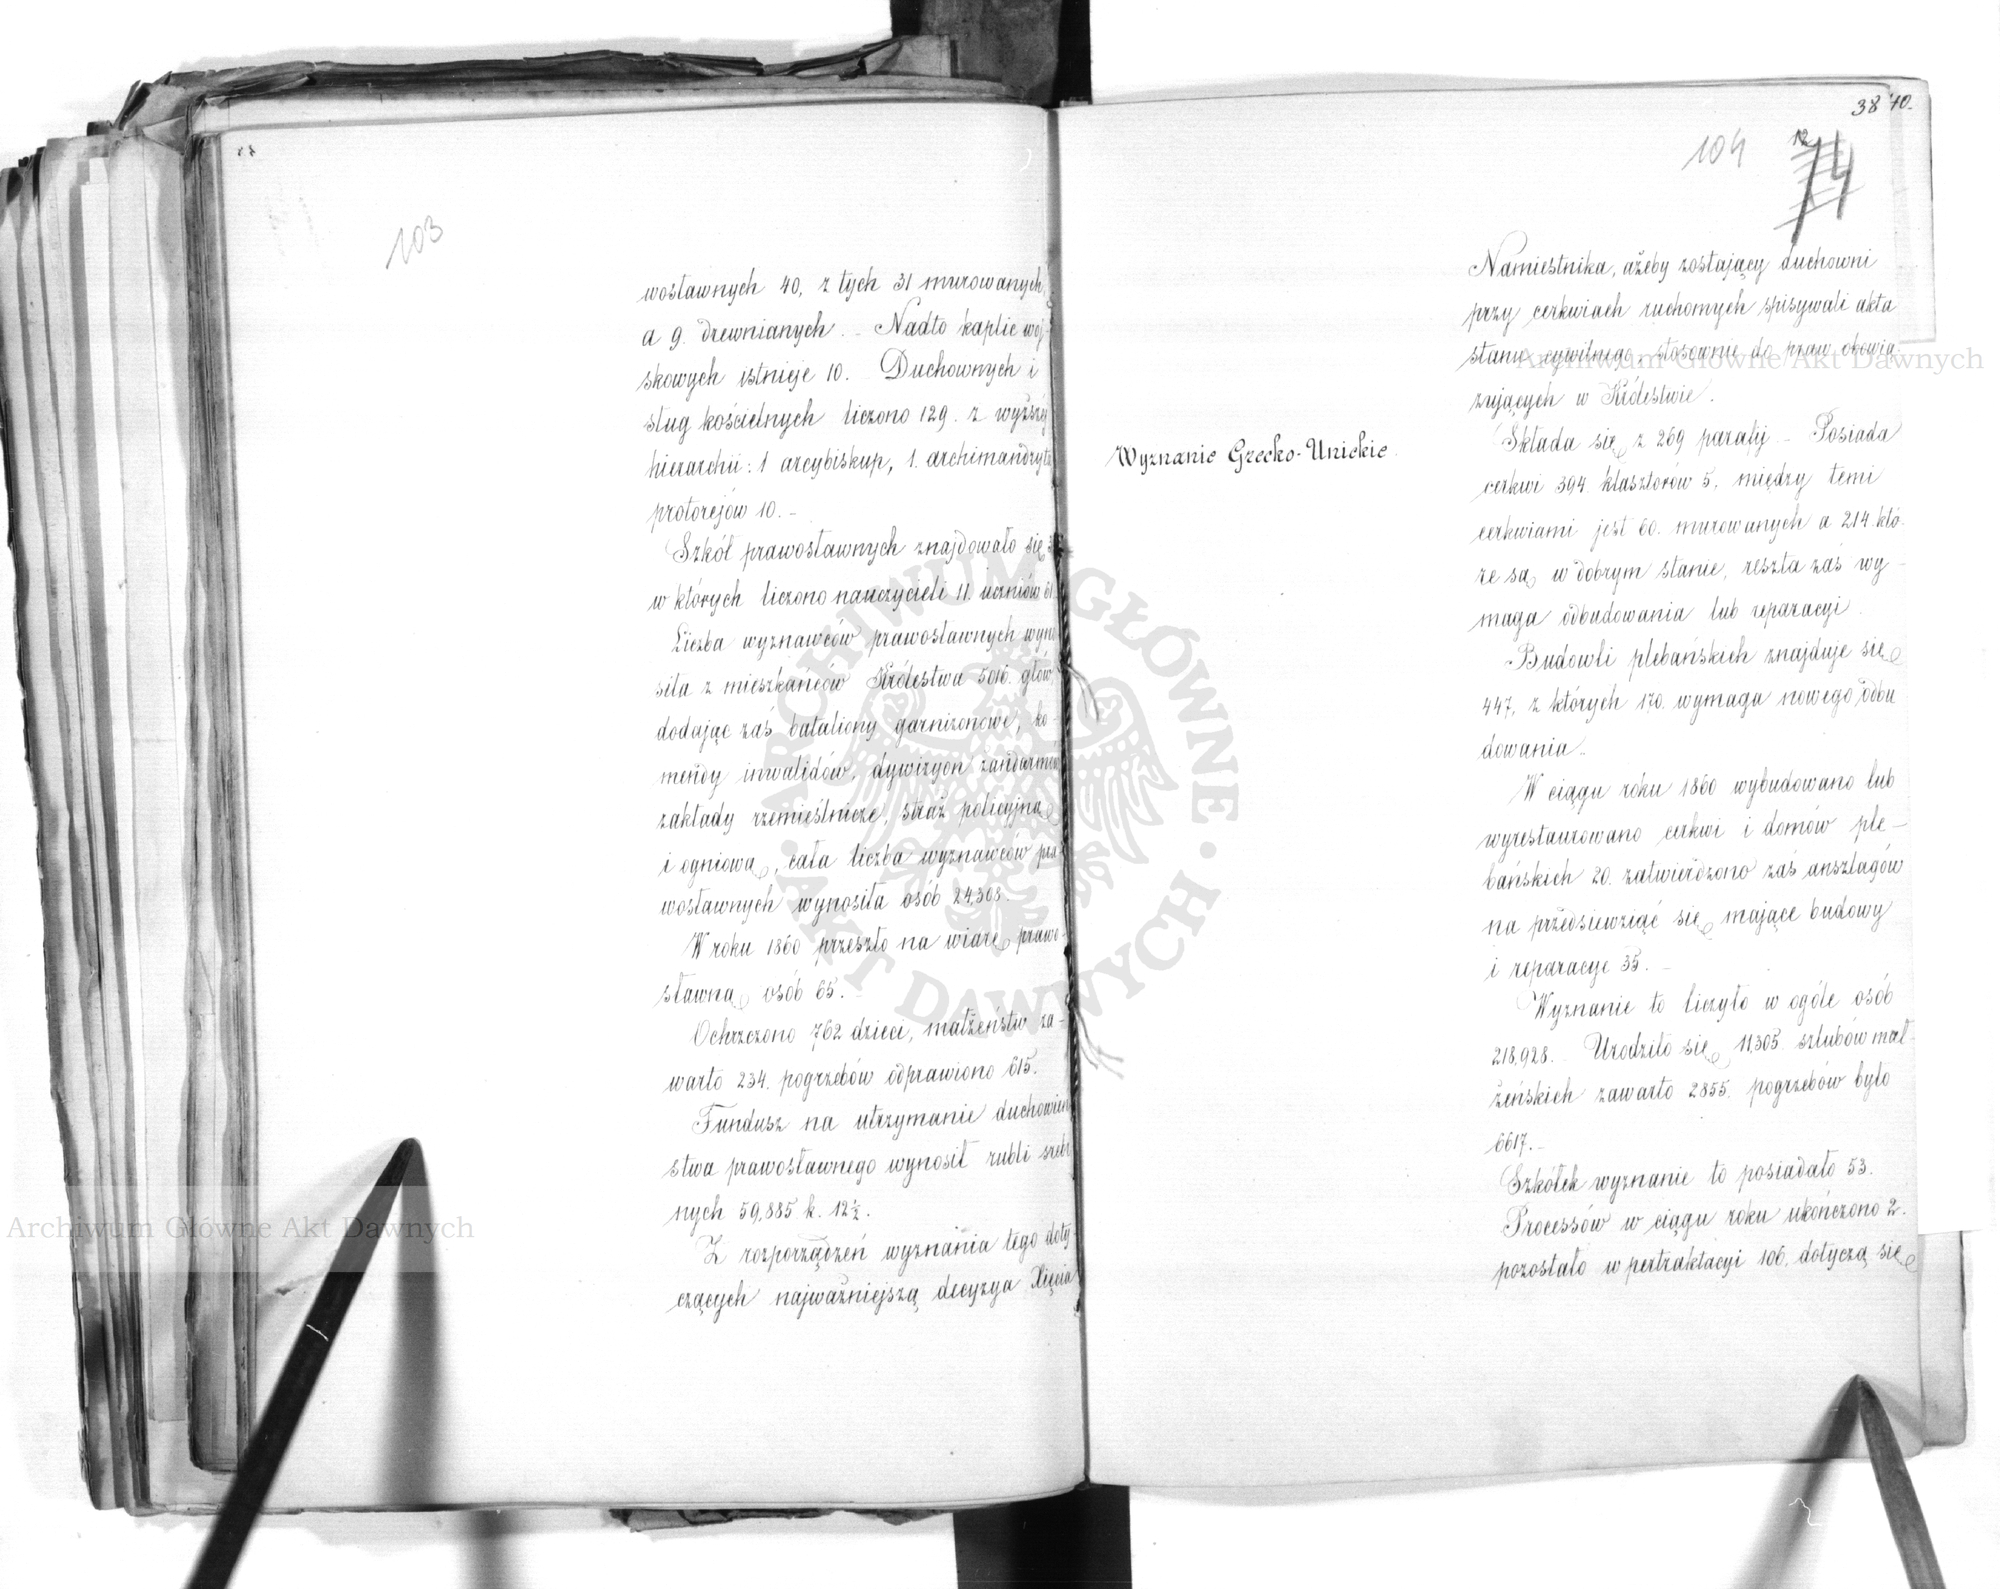 103
wosławnych 40, z tych 31 murowanych
a 9. drewnianych. – Nadto kaplic woj-
skowych istnieje 10. Duchownych i
sług kościelnych liczono 129. z wyższej
hierarchii: 1 arcybiskup, 1. archimandryta
protorejów 10. –
Szkół prawosławnych znajdowało się
w których liczono nauczycieli 11. uczniów
Liczba wyznawców prawosławnych wyno
siła z mieszkańców Królestwa 5016. głów,
dodając zaś bataliony garnizonowe, ko-
mendy inwalidów, dywizyon żandarmów
zakłady rzemieślnicze, straż policyjną
i ogniową, cała liczba wyznawców pra
wosławnych wynosiła osób 24,308.
W roku 1860 przeszło na wiarę prawo-
sławną osób 65. –
Ochrzczono 762 dzieci, małżeństw za-
warto 234. pogrzebów odprawiono 615.
Fundusz na utrzymanie duchowień
stwa prawosławnego wynosił rubli srebr
nych 59,885 k. 12½.
Z rozporządzeń wyznania tego doty-
czących najważniejszą decyzya Xięcia
38 40.
104
12
74
Namiestnika, ażeby zostający duchowni
przy cerkwiach ruchomych spisywali akta
stanu cywilnego, stosownie do praw obowią-
zujących w Królestwie.
Wyznanie Grecko-Unickie.
Składa się z 269 parafij. – Posiada
cerkwi 394. klasztorów 5, między temi
cerkwiami jest 60. murowanych a 214. któ-
re są w dobrym stanie, reszta zaś wy-
maga odbudowania lub reparacyi.
Budowli plebańskich znajduje się
447, z których 170. wymaga nowego odbu
dowania..
W ciągu roku 1860 wybudowano lub
wyrestaurowano cerkwi i domów ple-
bańskich 20. zatwierdzono zaś anszlagów
na przedsiewziąć się mające budowy
i reparacye 35. –
Wyznanie to liczyło w ogóle osób
218,928. Urodziło się 11,305. szlubów mał-
żeńskich zawarto 2855. pogrzebów było
6617. –
Szkółek wyznanie to posiadało 53.
Processów w ciągu roku ukończono 2.
pozostało w pertraktacyi 106. dotyczą się
Archiwum Główne Akt Dawnych
Archiwum Główne Akt Dawnych
ARCHIWUM GŁÓWNE · AKT DAWNYCH ·